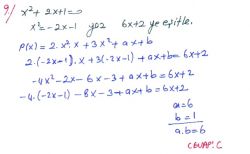 9/ x²+2x+1=0
x²=-2x-1 yaz 6x+2 ye eşitle.
P(x) = 2.x².x + 3x² + ax+b
2.(-2x-1).x + 3(-2x-1) + ax+b = 6x+2
-4x²-2x-6x-3+ax+b = 6x+2
-4.(-2x-1) -8x-3+ax+b = 6x+2
a=6
b=1
a.b=6
CEVAP: C